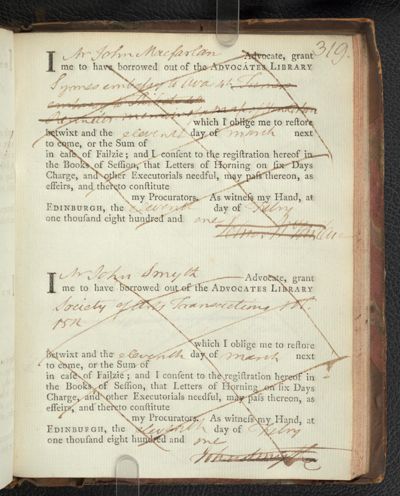 319.
I Mr John Macfarlan Advocate, grant
me to have borrowed out of the ADVOCATES LIBRARY
Symes embassy to Ava 4to
which I oblige me to restore
betwixt and the eleventh day of march next
to come, or the Sum of
in case of Failzie; and I consent to the registration hereof in
the Books of Session, that Letters of Horning on six Days
Charge, and other Executorials needful, may pass thereon, as
effeirs, and thereto constitute
my Procurators. As witness my Hand, at
EDINBURGH, the eleventh day of Febry
one thousand eight hundred and one
I Mr John Smyth Advocate, grant
me to have borrowed out of the ADVOCATES LIBRARY
Society of Arts Transactions
15th
which I oblige me to restore
betwixt and the eleventh day of march next
to come, or the Sum of
in case of Failzie; and I consent to the registration hereof in
the Books of Session, that Letters of Horning on six Days
Charge, and other Executorials needful, may pass thereon, as
effeirs, and thereto constitute
my Procurators. As witness my Hand, at
EDINBURGH, the eleventh day of Febry
one thousand eight hundred and one
John Smyth